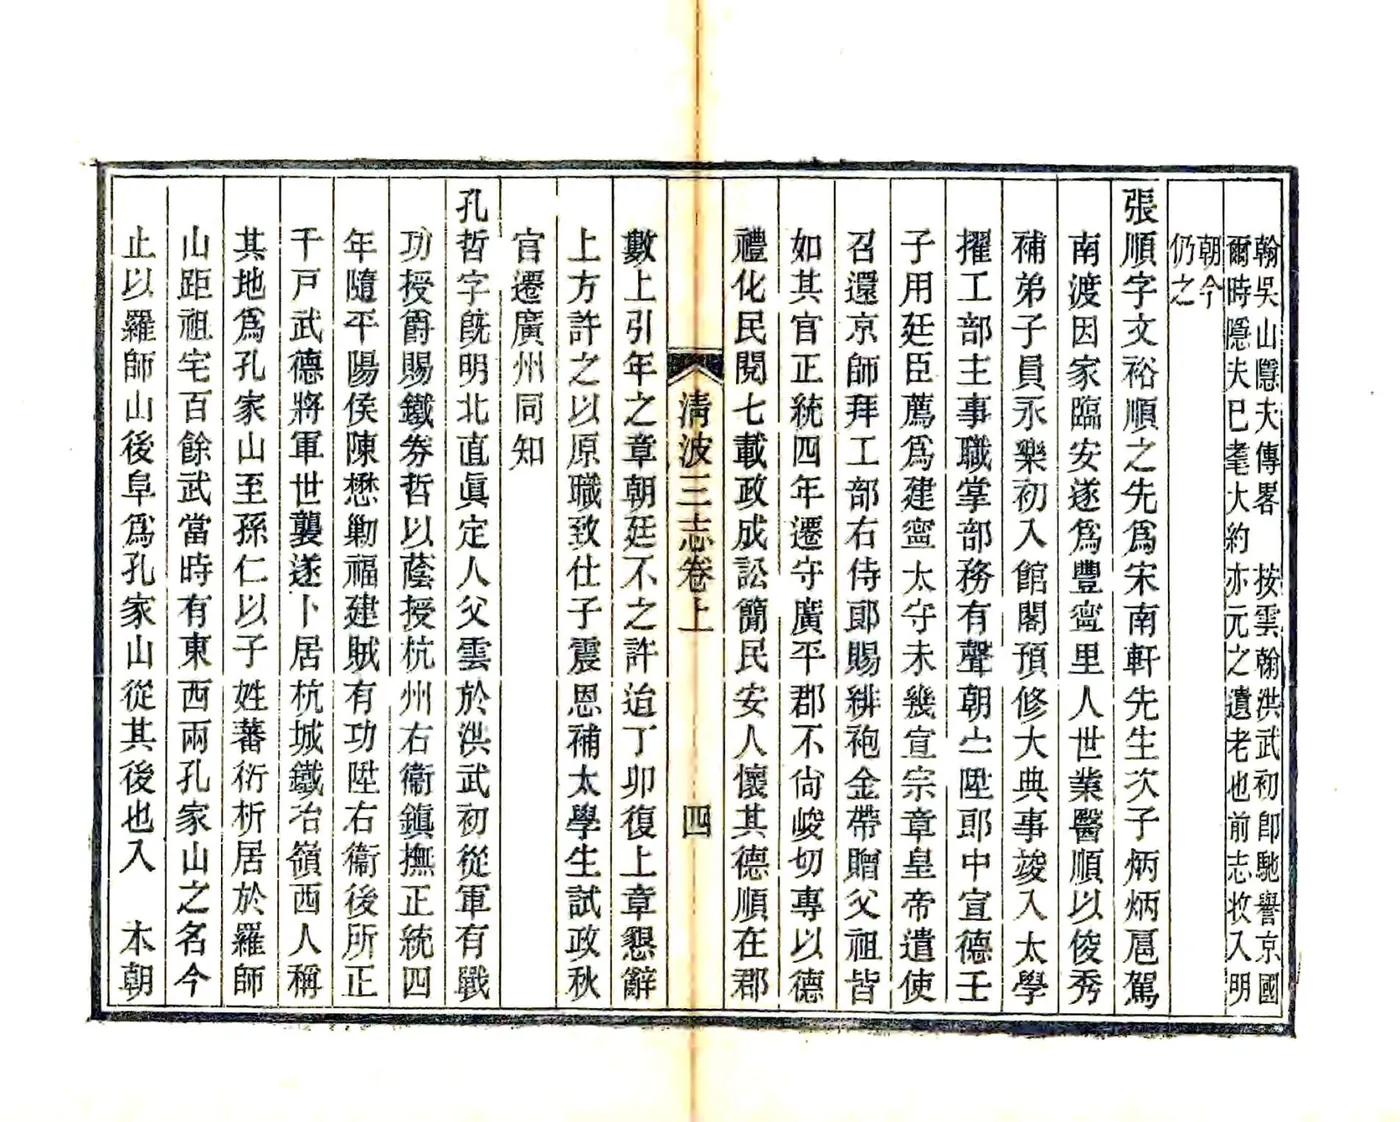 翰吳山隱夫傳畧　按雲翰洪武初即馳譽京國
爾時隱夫已耄大約亦元之遺老也前志收入明
朝今
仍之
張順字文裕順之先爲宋南軒先生次子炳炳扈駕
南渡因家臨安遂爲豐寧里人世業醫順以俊秀
補弟子員永樂初入館閣預修大典事竣入太學
擢工部主事職掌部務有聲朝亼陞郎中宣德壬
子用廷臣薦爲建寧太守未幾宣宗章皇帝遣使
召還京師拜工部右侍郎賜緋袍金帶贈父祖皆
如其官正統四年遷守廣平郡不尙峻切專以德
禮化民閱七載政成訟簡民安人懷其德順在郡
清波三志卷上
四
數上引年之章朝廷不之許迨丁卯復上章懇辭
上方許之以原職致仕子震恩補太學生試政秋
官遷廣州同知
孔哲字旣明北直眞定人父雲於洪武初從軍有戰
功授爵賜鐵劵哲以蔭授杭州右衞鎮撫正統四
年隨平陽侯陳懋勦福建賊有功陞右衞後所正
千戸武德將軍世襲遂卜居杭城鐵冶嶺西人稱
其地爲孔家山至孫仁以子姓蕃衍析居於羅師
山距祖宅百餘武當時有東西兩孔家山之名今
止以羅師山後阜爲孔家山從其後也入　本朝